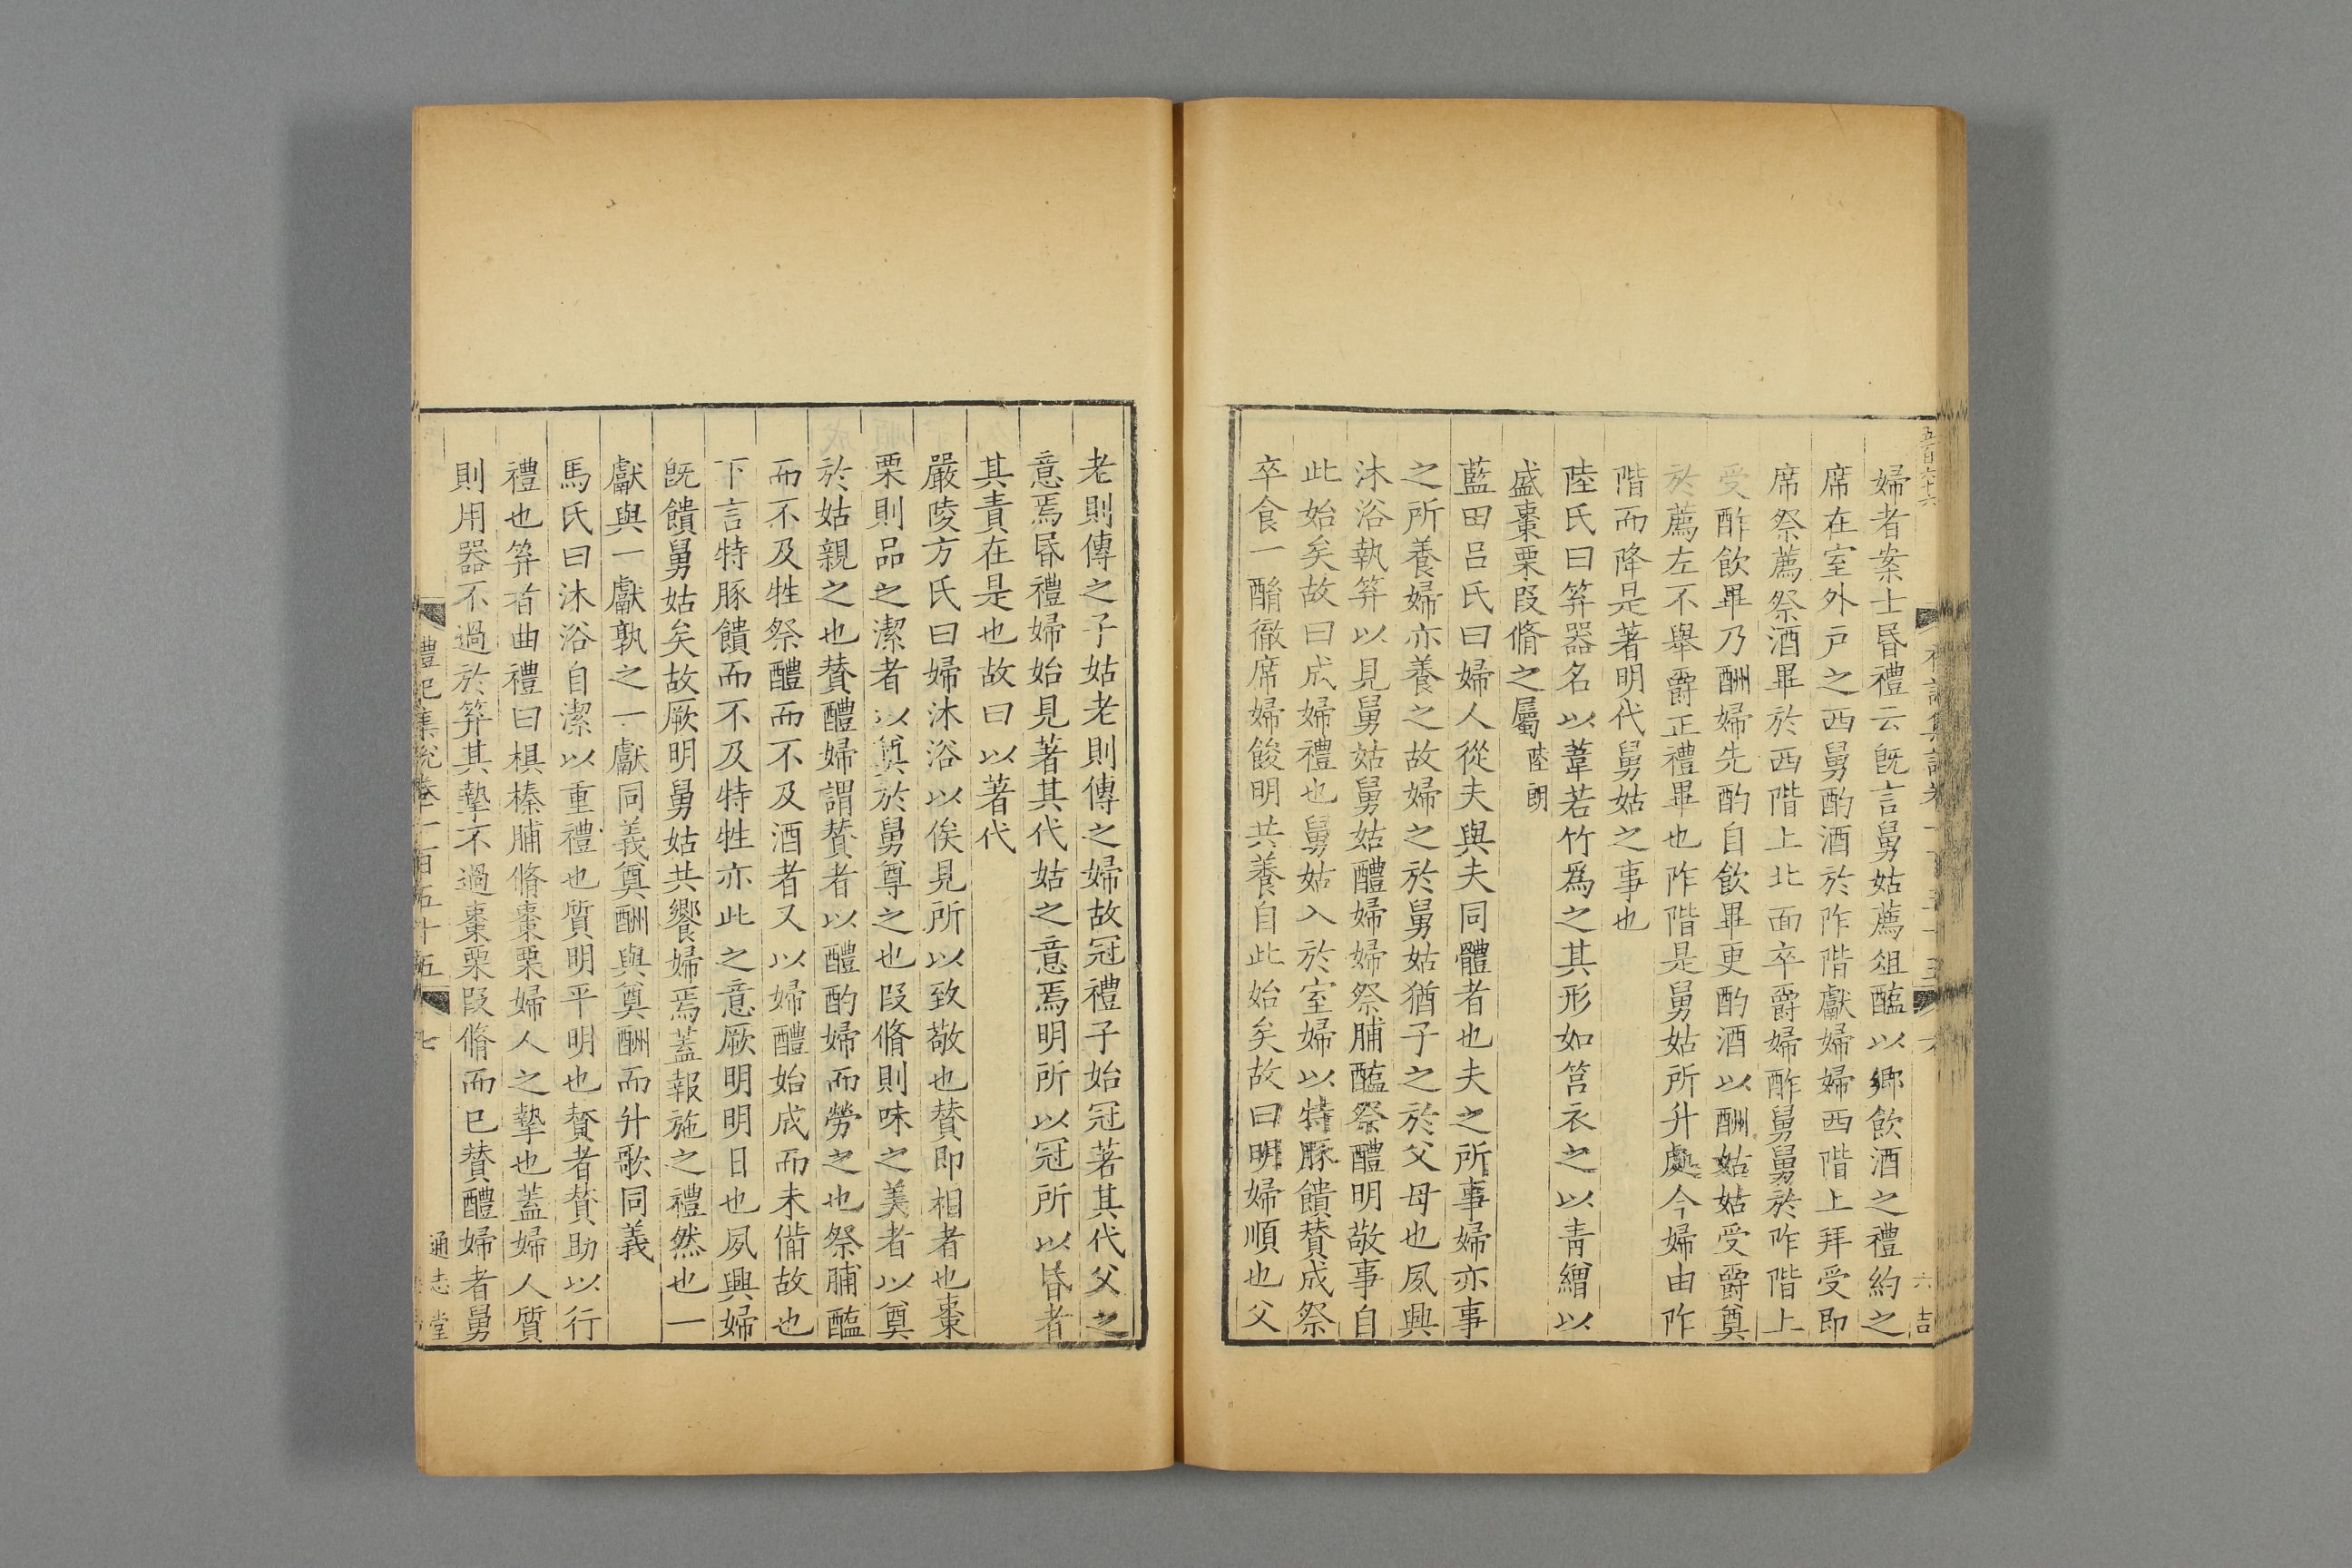 五百六十六
婦者案士昏禮云既言舅姑薦俎醢以鄉飲酒之禮約之
席在室外戸之西舅酌酒於阼階獻婦婦西階上拜受即
席祭薦祭酒畢於西階上北面卒爵婦酢舅舅於阼階上
受酢飲畢乃酬婦先酌自飲畢更酌酒以酬姑姑受爵奠
於薦左不舉爵正禮畢也阼階是舅姑所升處今婦由阼
階而降是著明代舅姑之事也
陸氏曰笲器名以葦若竹爲之其形如筥衣之以青繒以
盛棗栗段脩之屬陸朗
藍田呂氏曰婦人從夫與夫同體者也夫之所事婦亦事
之所養婦亦養之故婦之於舅姑猶子之於父母也夙興
沐浴執笲以見舅姑舅姑醴婦婦祭脯醢祭醴明敬事自
此始矣故曰成婦禮也舅姑入於室婦以特豚饋賛成祭
卒食一酳徹席婦餕明共養自此始矣故曰明婦順也父
老則傳之子姑老則傳之婦故冠禮子始冠著其代父之
意焉昏禮婦始見著其代姑之意焉明所以冠所以昏者
其責在是也故曰以著代
嚴陵方氏曰婦沐浴以俟見所以致敬也賛即相者也棗
栗則品之潔者以奠於舅尊之也段脩則味之美者以奠
於姑親之也賛醴婦謂賛者以醴酌婦而勞之也祭脯醢
而不及牲祭醴而不及酒者又以婦醴始成而未備故也
下言特豚饋而不及特牲亦此之意厥明明日也夙興婦
既饋舅姑矣故厥明舅姑共饗婦焉蓋報施之禮然也一
獻與一獻孰之一獻同義奠酬與奠酬而升歌同義
馬氏曰沐浴自潔以重禮也質明平明也賛者賛助以行
禮也笲者曲禮曰椇榛脯脩棗栗婦人之摯也蓋婦人質
則用器不過於笲其摯不過棗栗段脩而已賛醴婦者舅
禮記集說卷一百五十五 七 通志堂